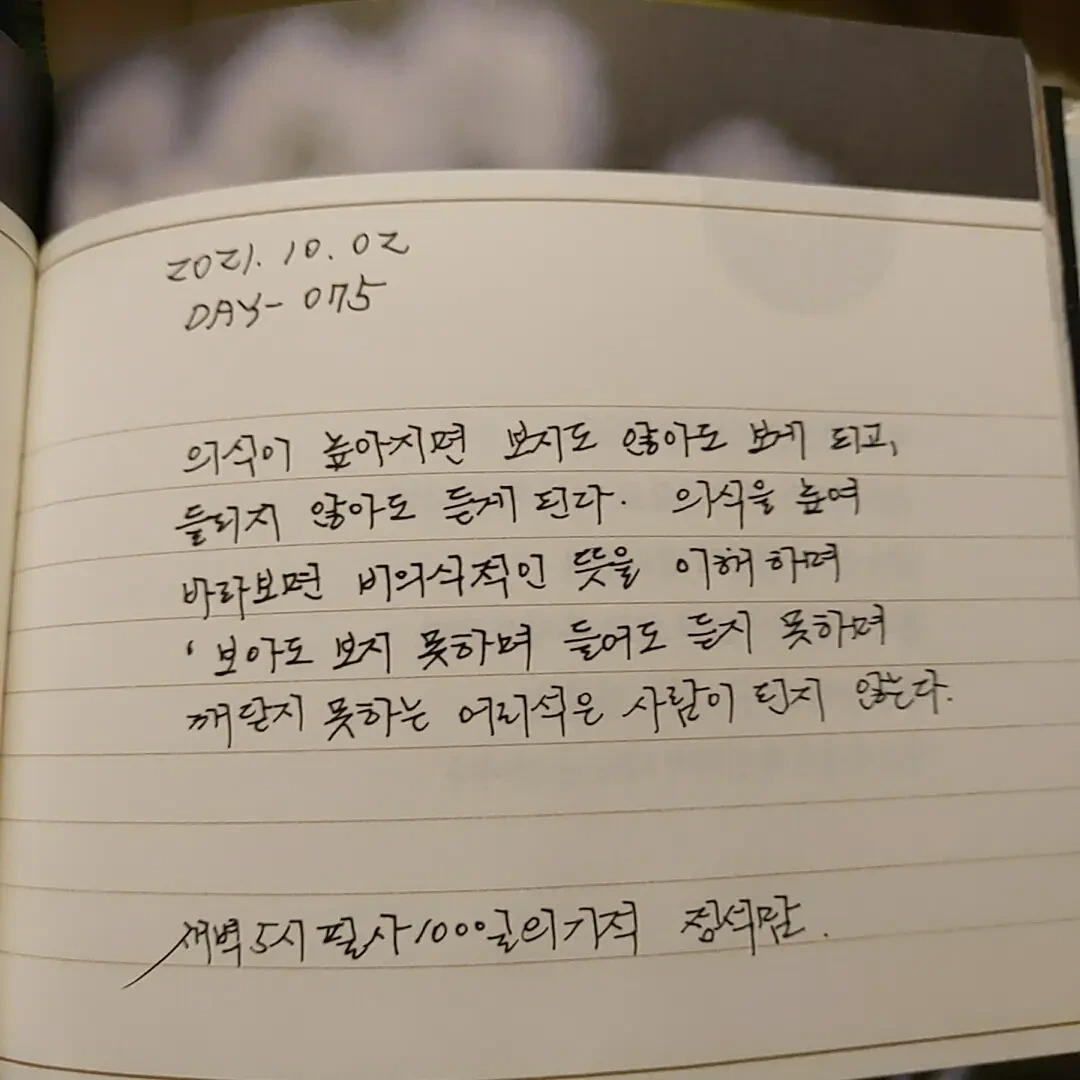 2021. 10. 02
DAY- 075
의식이 높아지면 보지도 않아도 보게 되고,
들리지 않아도 듣게 된다. 의식을 높여
바라보면 비의식적인 뜻을 이해 하며
‘보아도 보지 못하며 들어도 듣지 못하며
깨닫지 못하는 어리석은 사람이 되지 않는다.
새벽 5시 필사 1000일의 기적 정석맘.